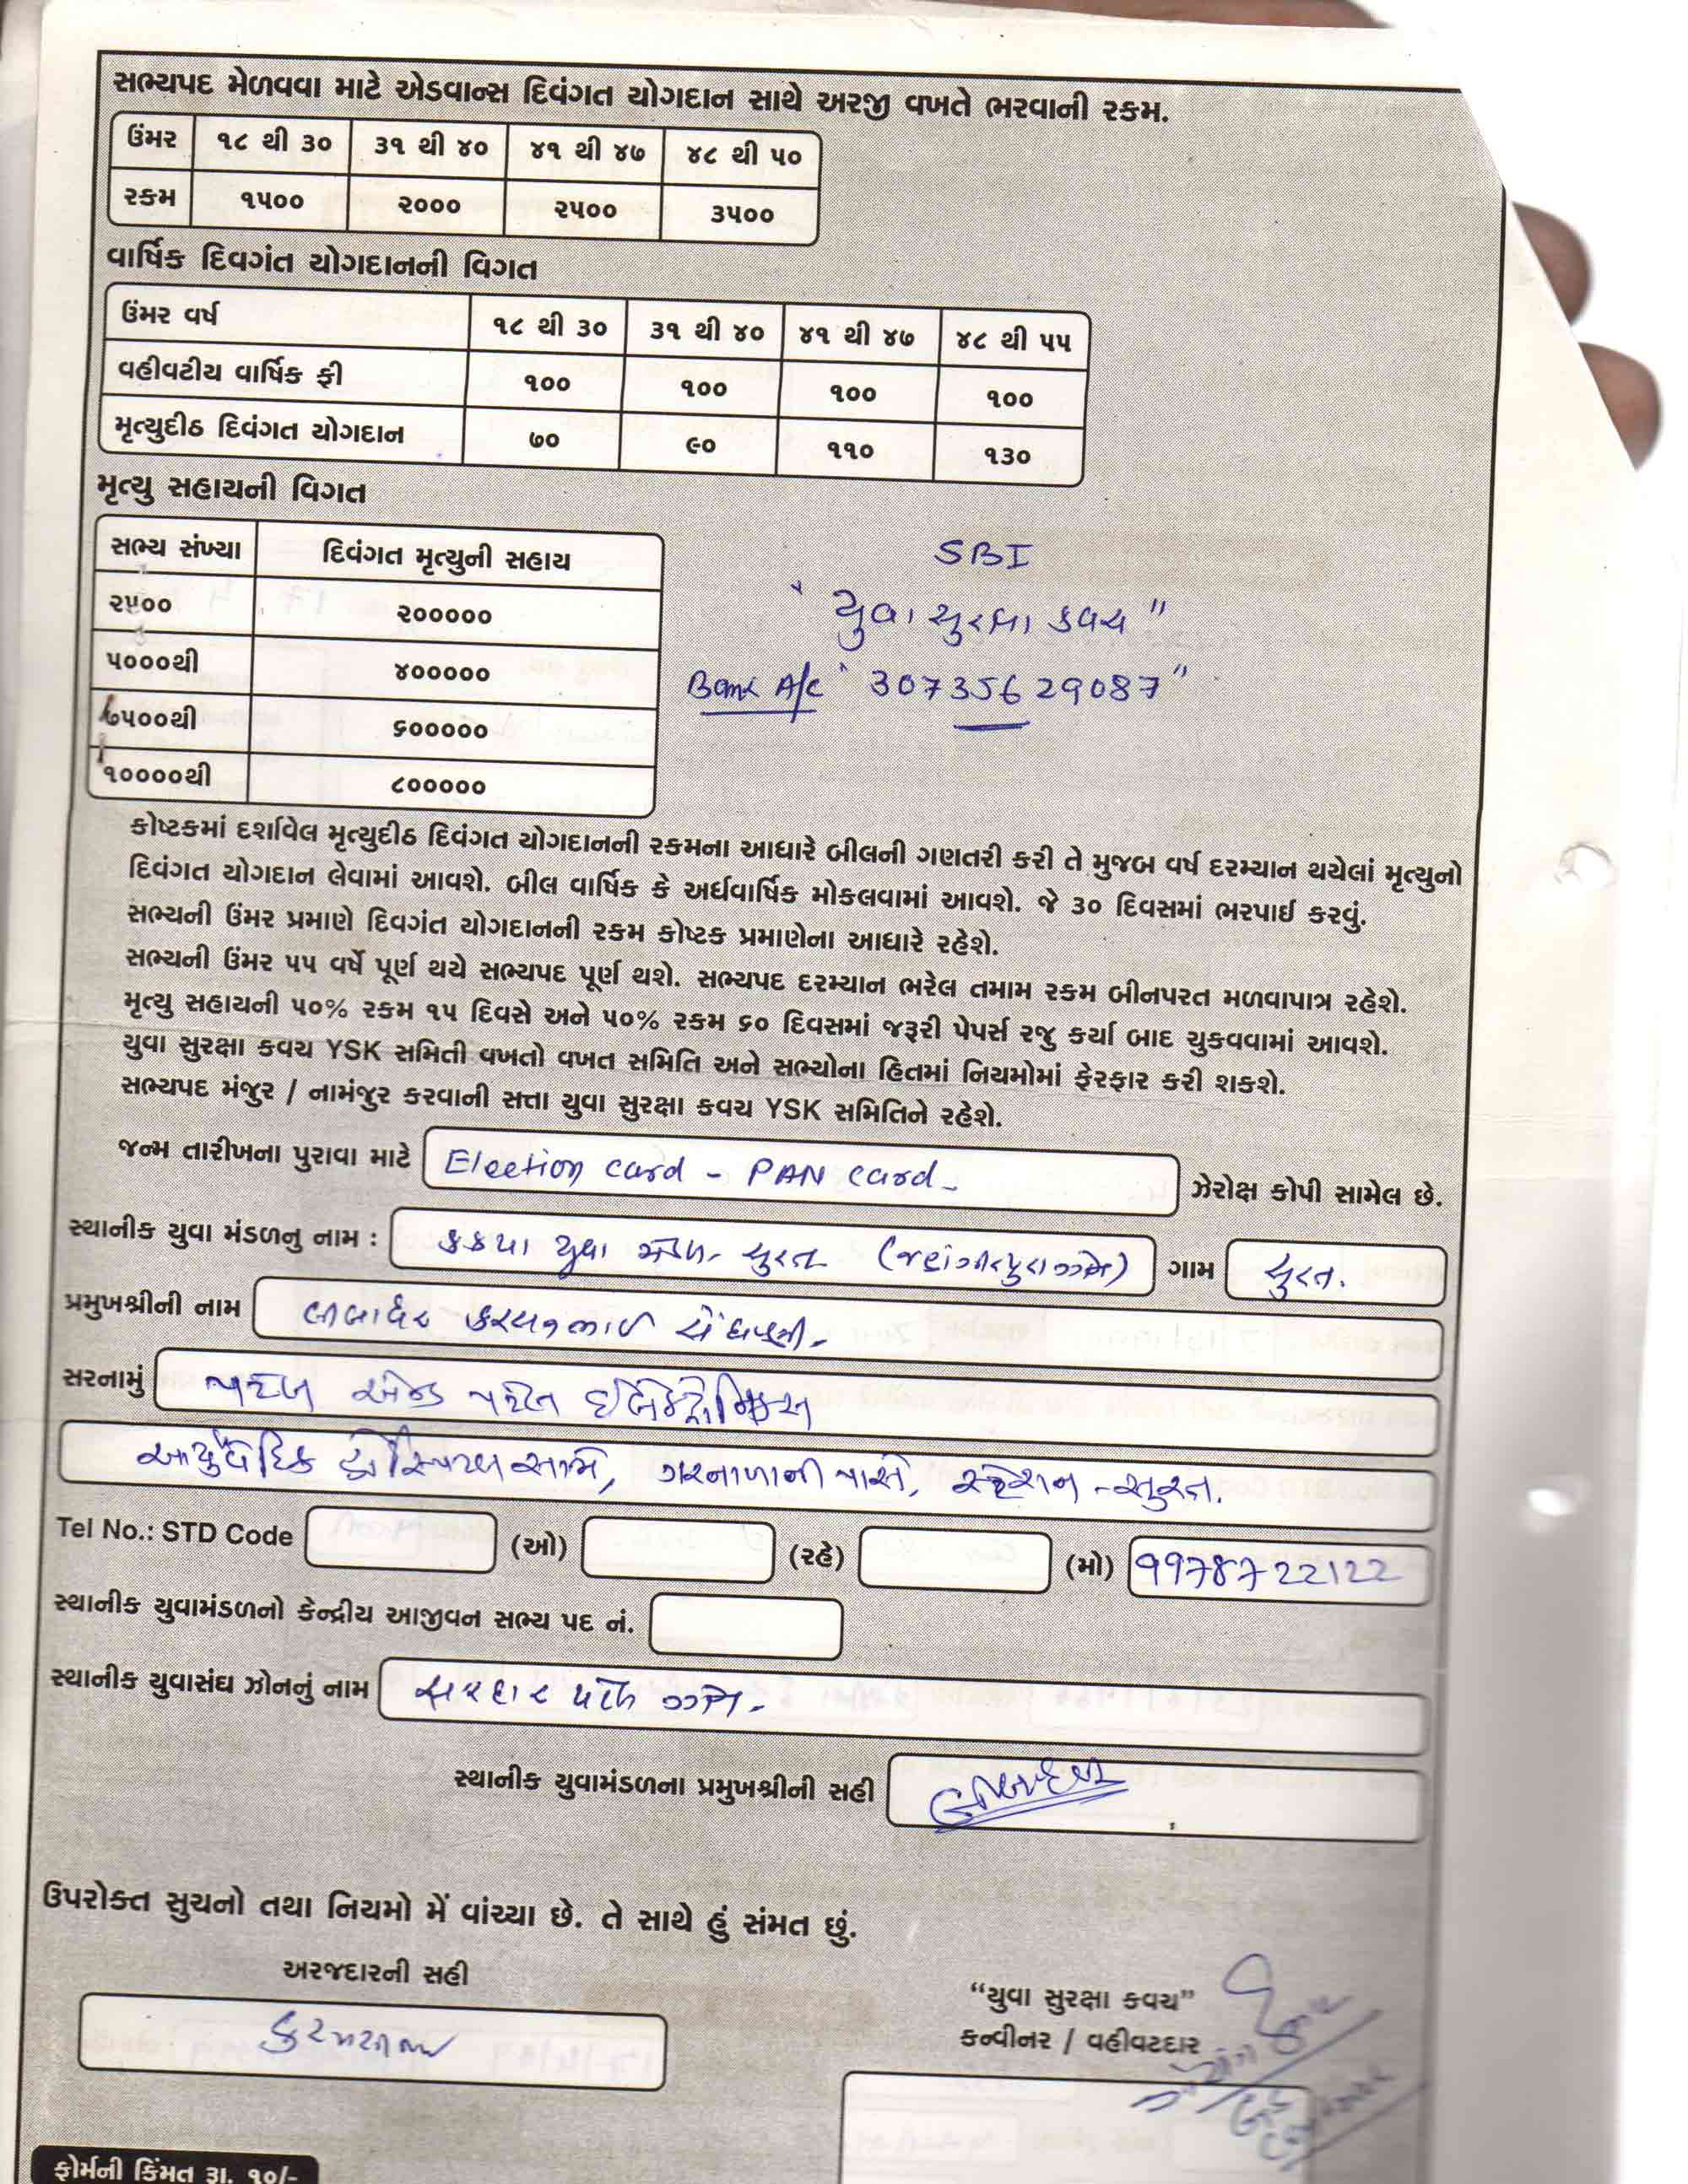 સભ્યપદ મેળવવા માટે એડવાન્સ દિવંગત યોગદાન સાથે અરજી વખતે ભરવાની રકમ.
ઉંમર ૧૮ થી ૩૦ ૩૧ થી ૪૦ ૪૧ થી ૪૭ ૪૮ થી ૫૦
રકમ ૧૫૦૦ ૨૦૦૦ ૨૫૦૦ ૩૫૦૦
વાર્ષિક દિવગંત યોગદાનની વિગત
ઉંમર વર્ષ ૧૮ થી ૩૦ ૩૧ થી ૪૦ ૪૧ થી ૪૭ ૪૮ થી ૫૫
વહીવટીય વાર્ષિક ફી ૧૦૦ ૧૦૦ ૧૦૦ ૧૦૦
મૃત્યુદીઠ દિવંગત યોગદાન ૭૦ ૯૦ ૧૧૦ ૧૩૦
મૃત્યુ સહાયની વિગત
સભ્ય સંખ્યા દિવંગત મૃત્યુની સહાય
૨૫૦૦ ૨૦૦૦૦૦
૫૦૦૦થી ૪૦૦૦૦૦
૭૫૦૦થી ૬૦૦૦૦૦
૧૦૦૦૦થી ૮૦૦૦૦૦
SBI
"યુવા સુરક્ષા કવચ"
Bank A/c "30735629087"
કોષ્ટકમાં દર્શાવેલ મૃત્યુદીઠ દિવંગત યોગદાનની રકમના આધારે બીલની ગણતરી કરી તે મુજબ વર્ષ દરમ્યાન થયેલાં મૃત્યુનો
દિવંગત યોગદાન લેવામાં આવશે. બીલ વાર્ષિક કે અર્ધવાર્ષિક મોકલવામાં આવશે. જે ૩૦ દિવસમાં ભરપાઈ કરવું.
સભ્યની ઉંમર પ્રમાણે દિવગંત યોગદાનની રકમ કોષ્ટક પ્રમાણેના આધારે રહેશે.
સભ્યની ઉંમર ૫૫ વર્ષે પૂર્ણ થયે સભ્યપદ પૂર્ણ થશે. સભ્યપદ દરમ્યાન ભરેલ તમામ રકમ બીનપરત મળવાપાત્ર રહેશે.
મૃત્યુ સહાયની ૫૦% રકમ ૧૫ દિવસે અને ૫૦% રકમ ૬૦ દિવસમાં જરૂરી પેપર્સ રજુ કર્યા બાદ ચુકવવામાં આવશે.
યુવા સુરક્ષા કવચ YSK સમિતી વખતો વખત સમિતિ અને સભ્યોના હિતમાં નિયમોમાં ફેરફાર કરી શકશે.
સભ્યપદ મંજુર / નામંજુર કરવાની સત્તા યુવા સુરક્ષા કવચ YSK સમિતિને રહેશે.
જન્મ તારીખના પુરાવા માટે Election card - PAN card - ઝેરોક્ષ કોપી સામેલ છે.
સ્થાનીક યુવા મંડળનુ નામ : કકપા યુવા મંડળ - સુરત (જહાંગીરપુરા ઝોન) ગામ સુરત.
પ્રમુખશ્રીની નામ લીલાધર કરસનભાઈ
સરનામું પટેલ એન્ડ પટેલ ઈલેક્ટ્રોનિક્સ
આયુર્વેદિક હોસ્પિટલ સામે, ગરનાળાની પાસે, સ્ટેશન - સુરત.
Tel No.: STD Code (ઓ) (રહે) (મો) 9978722122
સ્થાનીક યુવામંડળનો કેન્દ્રીય આજીવન સભ્ય પદ નં.
સ્થાનીક યુવાસંઘ ઝોનનું નામ સરદાર પટેલ ઝોન -
સ્થાનીક યુવામંડળના પ્રમુખશ્રીની સહી લીલાધર
ઉપરોક્ત સુચનો તથા નિયમો મેં વાંચ્યા છે. તે સાથે હું સંમત છું.
અરજદારની સહી
"યુવા સુરક્ષા કવચ"
કન્વીનર / વહીવટદાર
ફોર્મની કિંમત રૂા. ૧૦/-